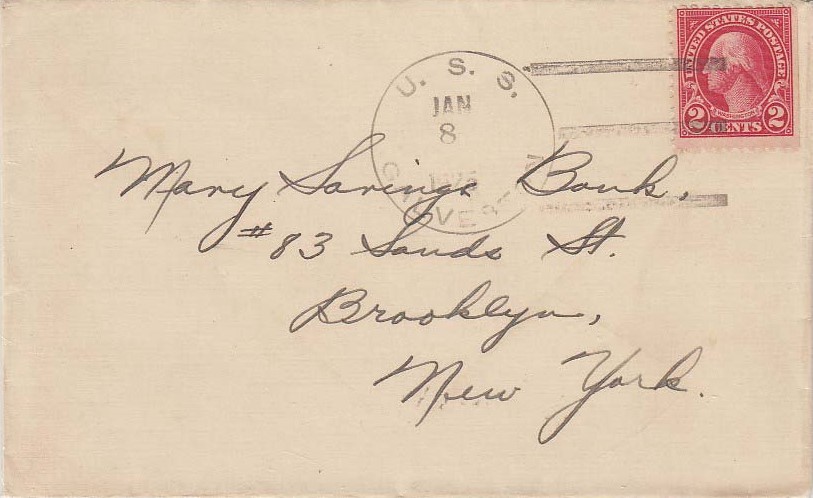 U. S. S.
JAN
8
UNITED STATES POSTAGE
2 CENTS 2
Mary Savings Bank,
#83 Sands St.
Brooklyn,
New York.